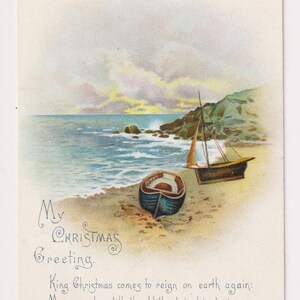 My
Christmas
Greeting.
King Christmas comes to reign on earth again: